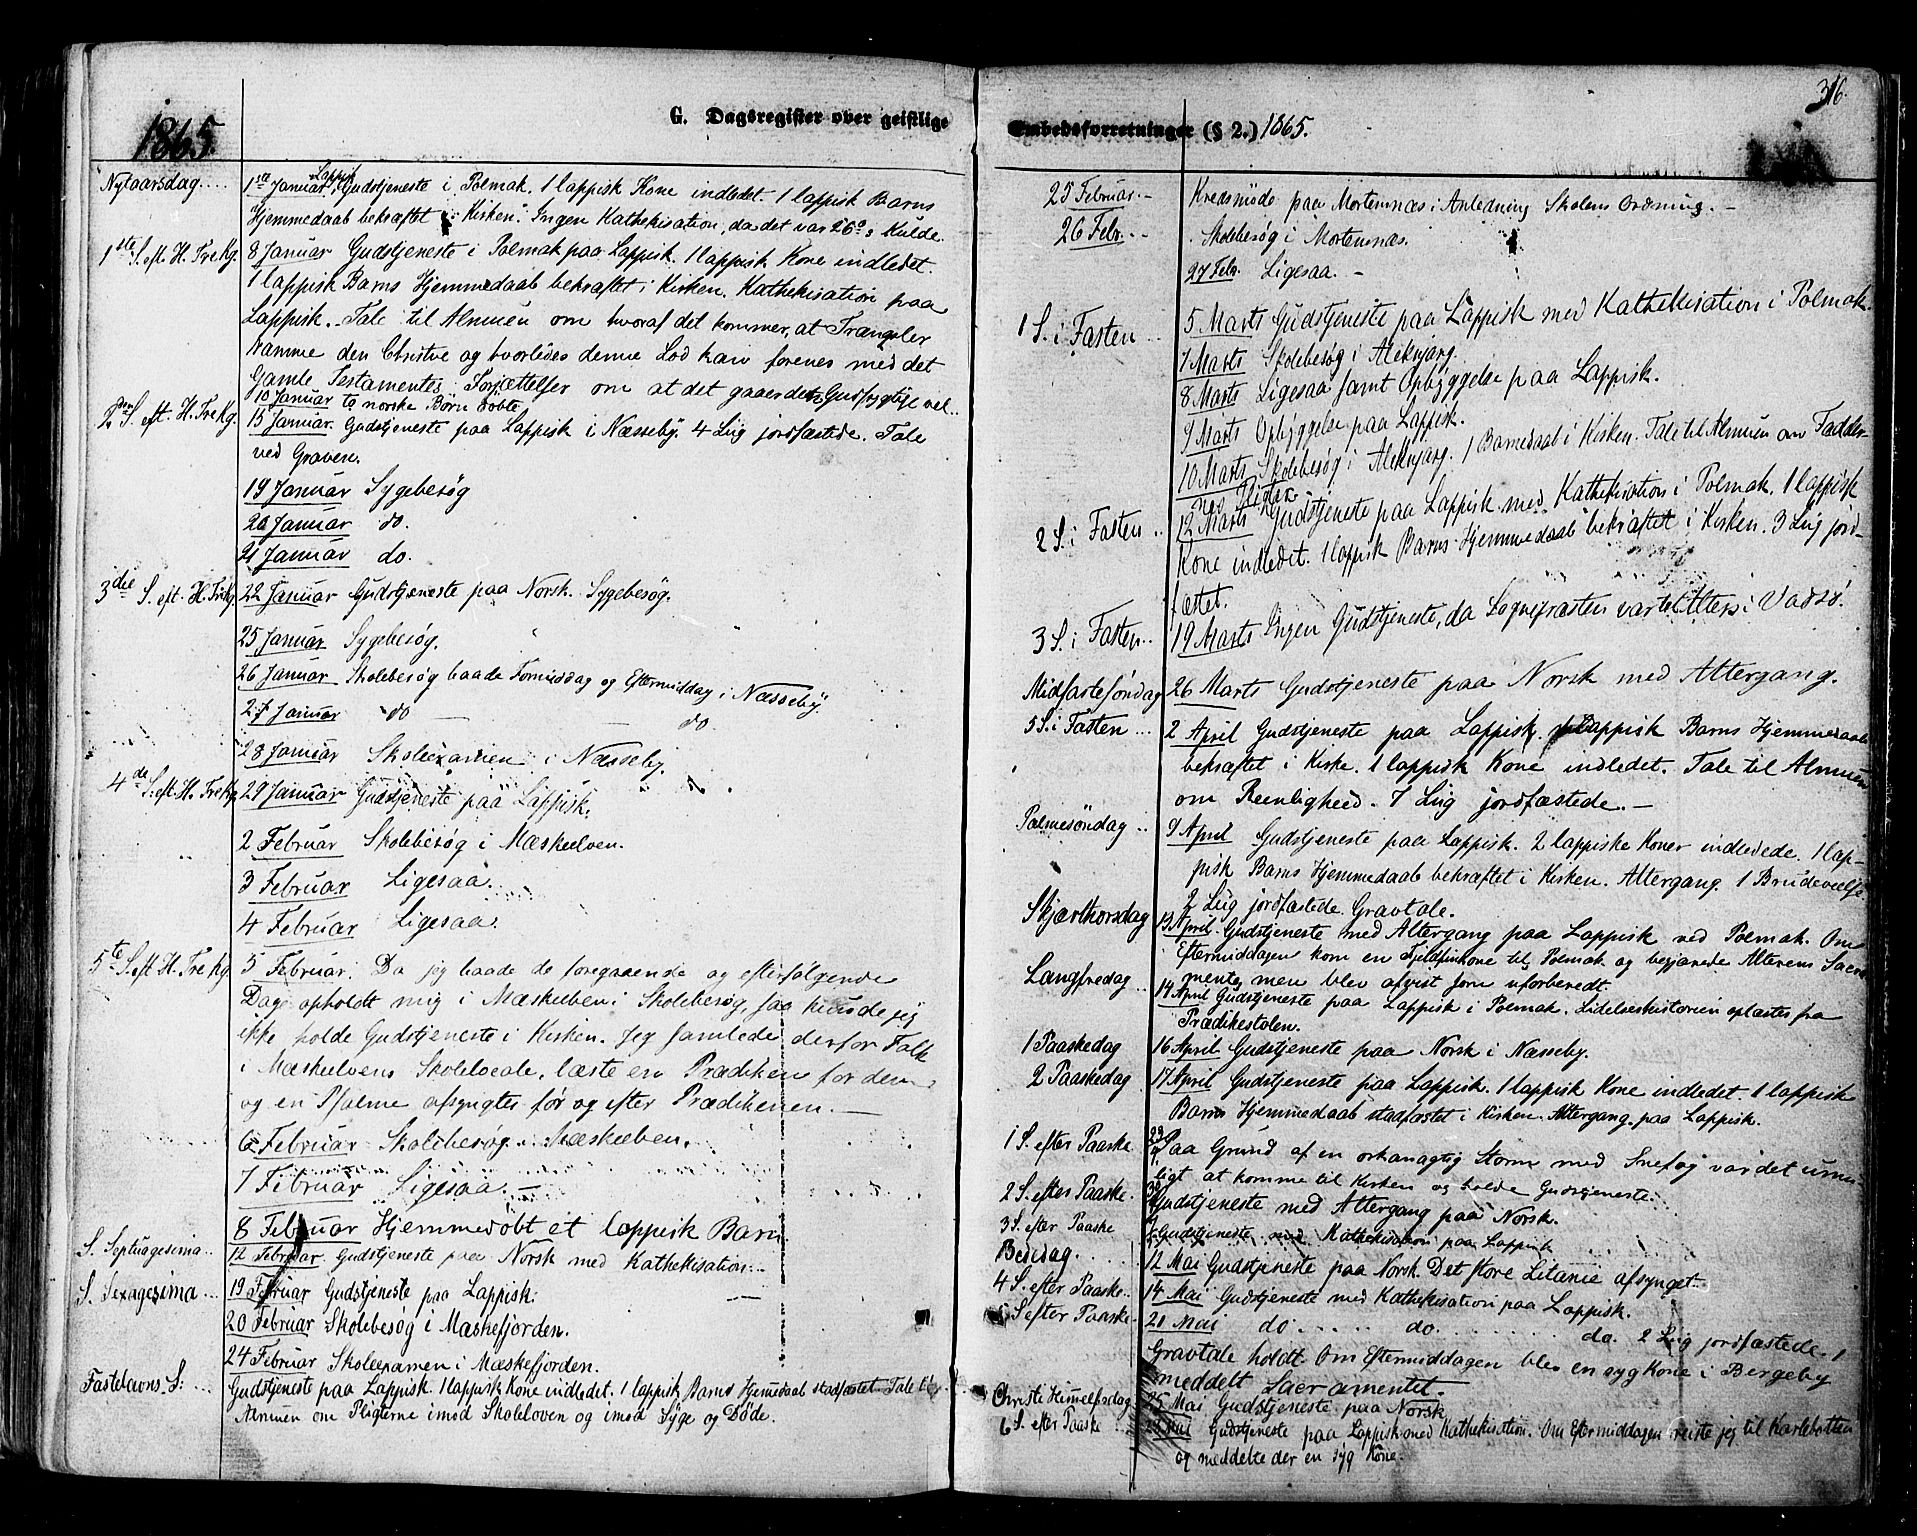 G. Dagsregister over geistlige
1865.
Nytaarsdag.... 1ste Januar. Lappisk Gudstjeneste i Polmak. 1 lappisk Kone indledet. 1 lappisk Barns
Hjemmedaab bekræftet i Kirken. Ingen Kathekisation, da det var 26° Kulde.
1ste S. eft. H. Tre Kg. 8 Januar Gudstjeneste i Polmak paa Lappisk. 1 lappisk Kone indledet.
1 lappisk Barns Hjemmedaab bekræftet i Kirken. Kathekisation paa
Lappisk. Tale til Almuen om hvoraf det kommer, at Trængsler
ramme den Christne og hvorledes denne Lod kan forenes med det
Gamle Testamentes Forjættelser om at det gaaer de Gudfrygtige vel..
10 Januar to norske Børn døbte
2den S. eft. H. Tre Kg. 15 Januar. Gudstjeneste paa Lappisk i Næsseby. 4 Liig jordfæstede. Tale
ved Graven.
19 Januar Sygebesøg
20 Januar do.
21 Januar do.
3die S. eft. H. Tre Kg. 22 Januar Gudstjeneste paa Norsk. Sygebesøg.
25 Januar Sygebesøg.
26 Januar Skolebesøg baade Formiddag og Eftermiddag i Næsseby.
27 Januar do — — do
28 Januar Skoleexamen i Næsseby.
4de S. eft. H. Tre Kg. 29 Januar Gudstjeneste paa Lappisk.
2 Februar Skolebesøg i Mæskeelven.
3 Februar Ligesaa.
4 Februar Ligesaa.
5te S. eft H. Tre Kg. 5 Februar. Da jeg baade de foregaaende og efterfølgende
Dage opholdt mig i Mæskelven i Skolebesøg, saa kunde jeg
ikke holde Gudstjeneste i Kirken. Jeg samlede derfor Folk
i Mæskelvens Skolelocale, læste en Prædiken for dem
og en Psalme afsyngtes før og efter Prædikenen. —
6 Februar Skolebesøg i Mæskelven.
7 Februar Ligesaa. —
8 Februar Hjemmedøbt et lappisk Barn
S. Septuagesima... 12 Februar Gudstjeneste paa Norsk med Kathekisation..
S. Sexagesima... 19 Februar Gudstjeneste paa Lappisk.
20 Februar Skolebesøg i Mæskefjorden.
24 Februar Skoleexamen i Mæskefjorden.
Fastelavns S. ... Gudstjeneste paa Lappisk. 1 lappisk Kone indledet. 1 lappisk Barns Hjemmedaab stadfæstet. Tale til
Almuen om Pligterne imod Skoleloven og imod Syge og Døde.
316.
Embedsforretninger (§ 2.) 1865.
25 Februar. — Kredsmøde paa Mortensnæs i Anledning Skolens Ordning. —
26 Febr. .. Skolebesøg i Mortensnæs.
27 Febr. Ligesaa. —
1 S. i Fasten .. 5 Marts Gudstjeneste paa Lappisk med Kathekisation i Polmak.
7 Marts Skolebesøg i Aleknjarg.
8 Marts Ligesaa samt Opbyggelse paa Lappisk.
9 Marts Opbyggelse paa Lappisk.
10 Marts Skolebesøg i Aleknjarg. 1 Barnedaab i Kirken. Tale til Almuen om Fadder-
nes Pligter.
2 S. i Fasten .. 12 Marts Gudstjeneste paa Lappisk med Kathekisation i Polmak. 1 lappisk
Kone indledet. 1 lappisk Barns Hjemmedaab bekræftet i Kirken. 3 Liig jord-
fæstet.
3 S. i Fasten.. 19 Marts Ingen Gudstjeneste, da Sognepræsten var til Things i Vadsø.
Midfastesøndag 26 Marts Gudstjeneste paa Norsk med Altergang.
5 S. i Fasten ... 2 April Gudstjeneste paa Lappisk. 1 Lappisk Barns Hjemmedaab
bekræftet i Kirke. 1 lappisk Kone indledet. Tale til Almuen
om Reenlighed. 7 Liig jordfæstede. —
Palmesøndag .. 9 April Gudstjeneste paa Lappisk. 2 lappiske Koner indledede. 1 lap-
pisk Barns Hjemmedaab bekræftet i Kirken. Altergang. 1 Brudevielse.
2 Liig jordfæstede. Gravtale.
Skjærthorsdag 13 April Gudstjeneste med Altergang paa Lappisk ved Polmak. Om
Eftermiddagen kom en Fjeldfinkone til Polmak og begjærede Alterens Sacra-
mente, men blev afvist som uforberedt.
Langfredag .. 14 April Gudstjeneste paa Lappisk i Polmak. Lidelseshistorien oplæstes fra
Prædikestolen.
1 Paaskedag 16 April Gudstjeneste paa Norsk i Næsseby.
2 Paaskedag 17 April Gudstjeneste paa Lappisk. 1 lappisk Kone indledet. 1 lappisk
Barns Hjemmedaab stadfæstet i Kirken. Altergang paa Lappisk.
1 S. efter Paaske 23 Paa Grund af en orkanagtig Storm med Snefog var det umu-
ligt at komme til Kirken og holde Gudstjeneste.
2 S. efter Paaske. 30 Gudstjeneste med Altergang paa Norsk.
3 S. efter Paaske Gudstjeneste med Kathekisation paa Lappisk
Bededag. 12 Mai Gudstjeneste paa Norsk. Det store Litanie afsynget.
4 S. efter Paaske.. 14 Mai Gudstjeneste med Kathekisation paa Lappisk.
5 S. efter Paaske. 21 Mai do..... do......... do. 2 Liig jordfæstede. 1
Gravtale holdt. Om Eftermiddagen blev en syg Kone i Bergeby
meddelt Sacramentet.
Christi Himmelfartsdag 25 Mai Gudstjeneste paa Norsk
6 S. efter Paaske 28 Mai Gudstjeneste paa Lappisk med Kathekisation. Om Eftermiddagen reiste jeg til Karlebotten
og meddelte der en syg Kone.